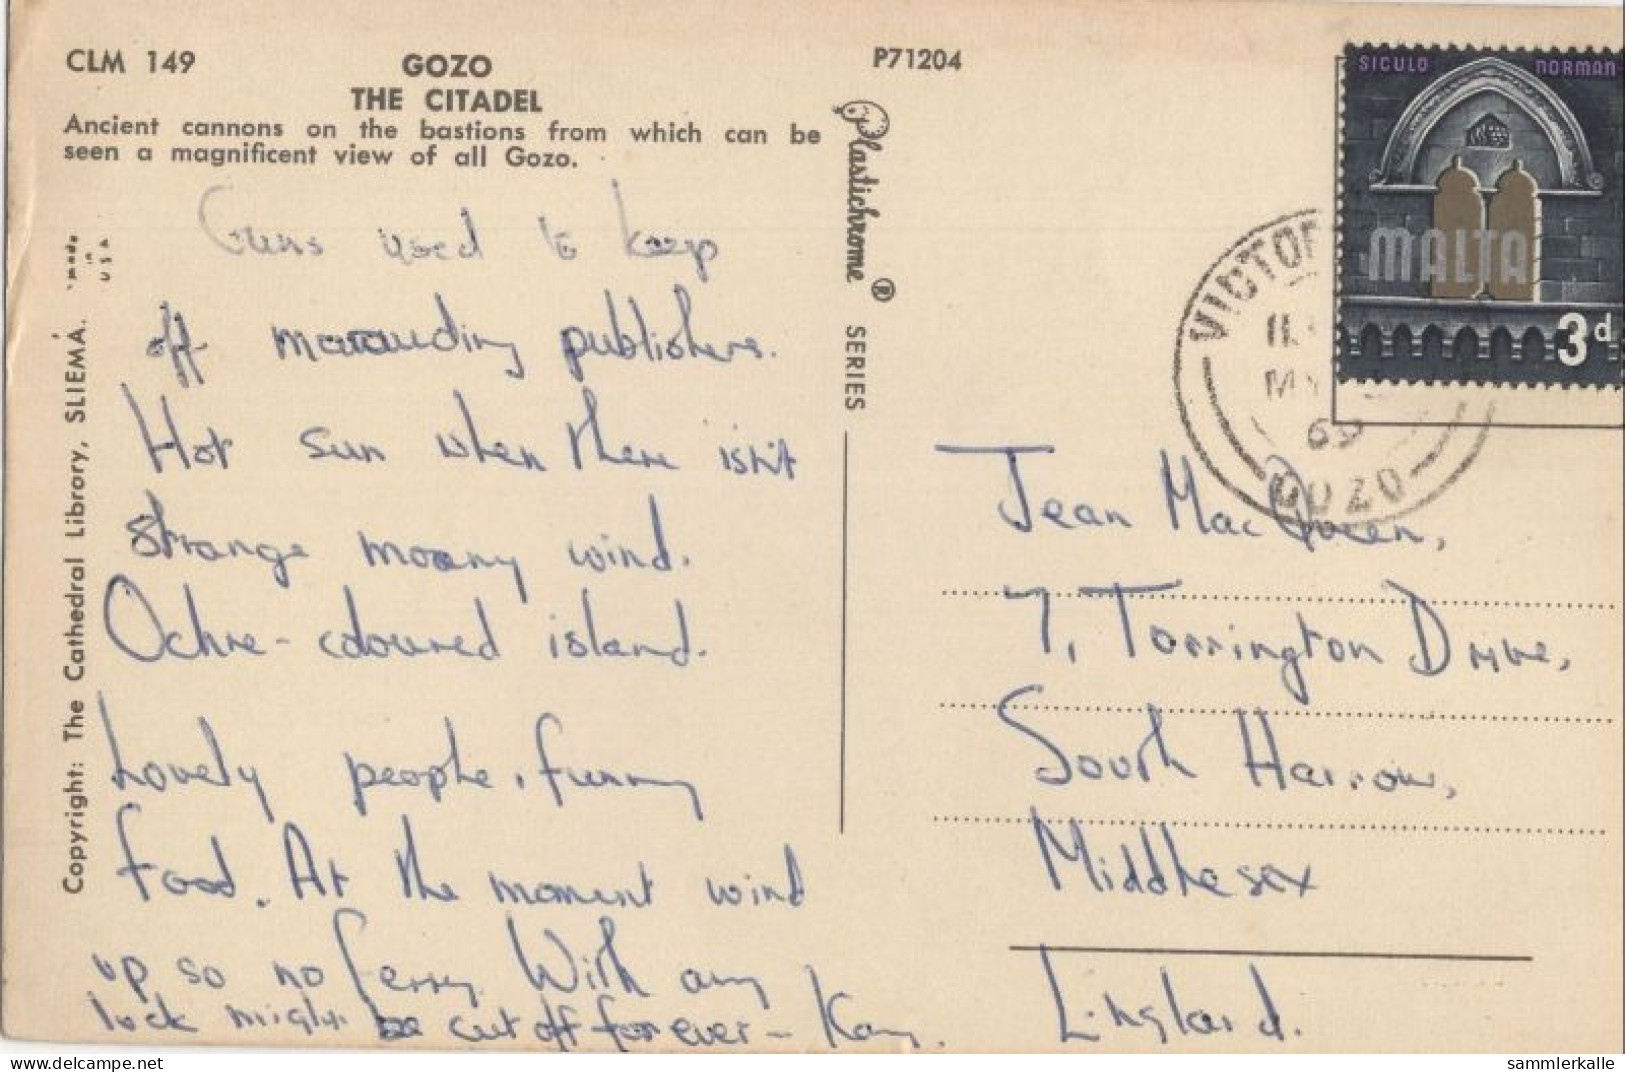 CLM 149
GOZO
THE CITADEL
Ancient cannons on the bastions from which can be
seen a magnificent view of all Gozo.
Guns used to keep
off marauding publishers.
Hot sun when there isn't
strange moany wind.
Ochre-coloured island.
Lovely people, funny
food. At the moment wind
up so no ferry. With any
luck might be cut off for ever - Kay.
made
in
USA
Copyright: The Cathedral Library, SLIEMA.
P71204
Plastichrome ® SERIES
SICULO NORMAN
MALTA
3d
VICTOR
MY
69
GOZO
Jean MacQueen,
7, Torrington Drive,
South Harrow,
Middlesex
England.
delcampe.net
sammlerkalle